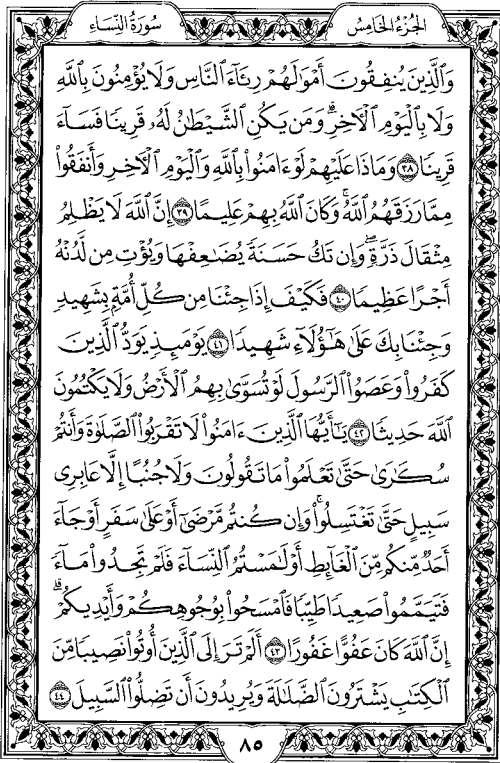 الجزء الخامس
سورة النساء
وَالَّذِينَ يُنفِقُونَ أَمْوَٰلَهُمْ رِئَآءَ النَّاسِ وَلَا يُؤْمِنُونَ بِاللَّهِ
وَلَا بِالْيَوْمِ الْءَاخِرِ ۗ وَمَن يَكُنِ الشَّيْطَٰنُ لَهُۥ قَرِينًا فَسَآءَ
قَرِينًا ٣٨ وَمَاذَا عَلَيْهِمْ لَوْ ءَامَنُوا۟ بِاللَّهِ وَالْيَوْمِ الْءَاخِرِ وَأَنفَقُوا۟
مِمَّا رَزَقَهُمُ اللَّهُ ۚ وَكَانَ اللَّهُ بِهِمْ عَلِيمًا ٣٩ إِنَّ اللَّهَ لَا يَظْلِمُ
مِثْقَالَ ذَرَّةٍ ۖ وَإِن تَكُ حَسَنَةً يُضَٰعِفْهَا وَيُؤْتِ مِن لَّدُنْهُ
أَجْرًا عَظِيمًا ٤٠ فَكَيْفَ إِذَا جِئْنَا مِن كُلِّ أُمَّةٍۭ بِشَهِيدٍ
وَجِئْنَا بِكَ عَلَىٰ هَٰٓؤُلَآءِ شَهِيدًا ٤١ يَوْمَئِذٍ يَوَدُّ الَّذِينَ
كَفَرُوا۟ وَعَصَوُا۟ الرَّسُولَ لَوْ تُسَوَّىٰ بِهِمُ الْأَرْضُ وَلَا يَكْتُمُونَ
اللَّهَ حَدِيثًا ٤٢ يَٰٓأَيُّهَا الَّذِينَ ءَامَنُوا۟ لَا تَقْرَبُوا۟ الصَّلَوٰةَ وَأَنتُمْ
سُكَٰرَىٰ حَتَّىٰ تَعْلَمُوا۟ مَا تَقُولُونَ وَلَا جُنُبًا إِلَّا عَابِرِى
سَبِيلٍ حَتَّىٰ تَغْتَسِلُوا۟ ۚ وَإِن كُنتُم مَّرْضَىٰٓ أَوْ عَلَىٰ سَفَرٍ أَوْ جَآءَ
أَحَدٌ مِّنكُم مِّنَ الْغَآئِطِ أَوْ لَٰمَسْتُمُ النِّسَآءَ فَلَمْ تَجِدُوا۟ مَآءً
فَتَيَمَّمُوا۟ صَعِيدًا طَيِّبًا فَامْسَحُوا۟ بِوُجُوهِكُمْ وَأَيْدِيكُمْ ۗ
إِنَّ اللَّهَ كَانَ عَفُوًّا غَفُورًا ٤٣ أَلَمْ تَرَ إِلَى الَّذِينَ أُوتُوا۟ نَصِيبًا مِّنَ
الْكِتَٰبِ يَشْتَرُونَ الضَّلَٰلَةَ وَيُرِيدُونَ أَن تَضِلُّوا۟ السَّبِيلَ ٤٤
٨٥